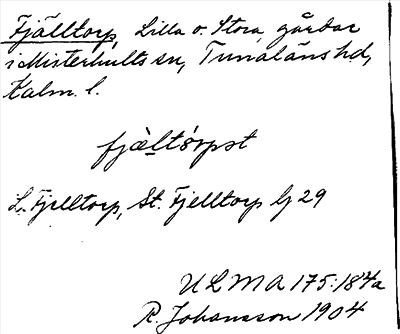 Fjälltorp, Lilla o. Stora, gårdar
i Misterhults sn, Tunaläns hd,
Kalm. l.
fjä̀ltórpst
L. Fjelltorp, St. Fjelltorp lj 29
ULMA 175:184a
R. Johansson 1904